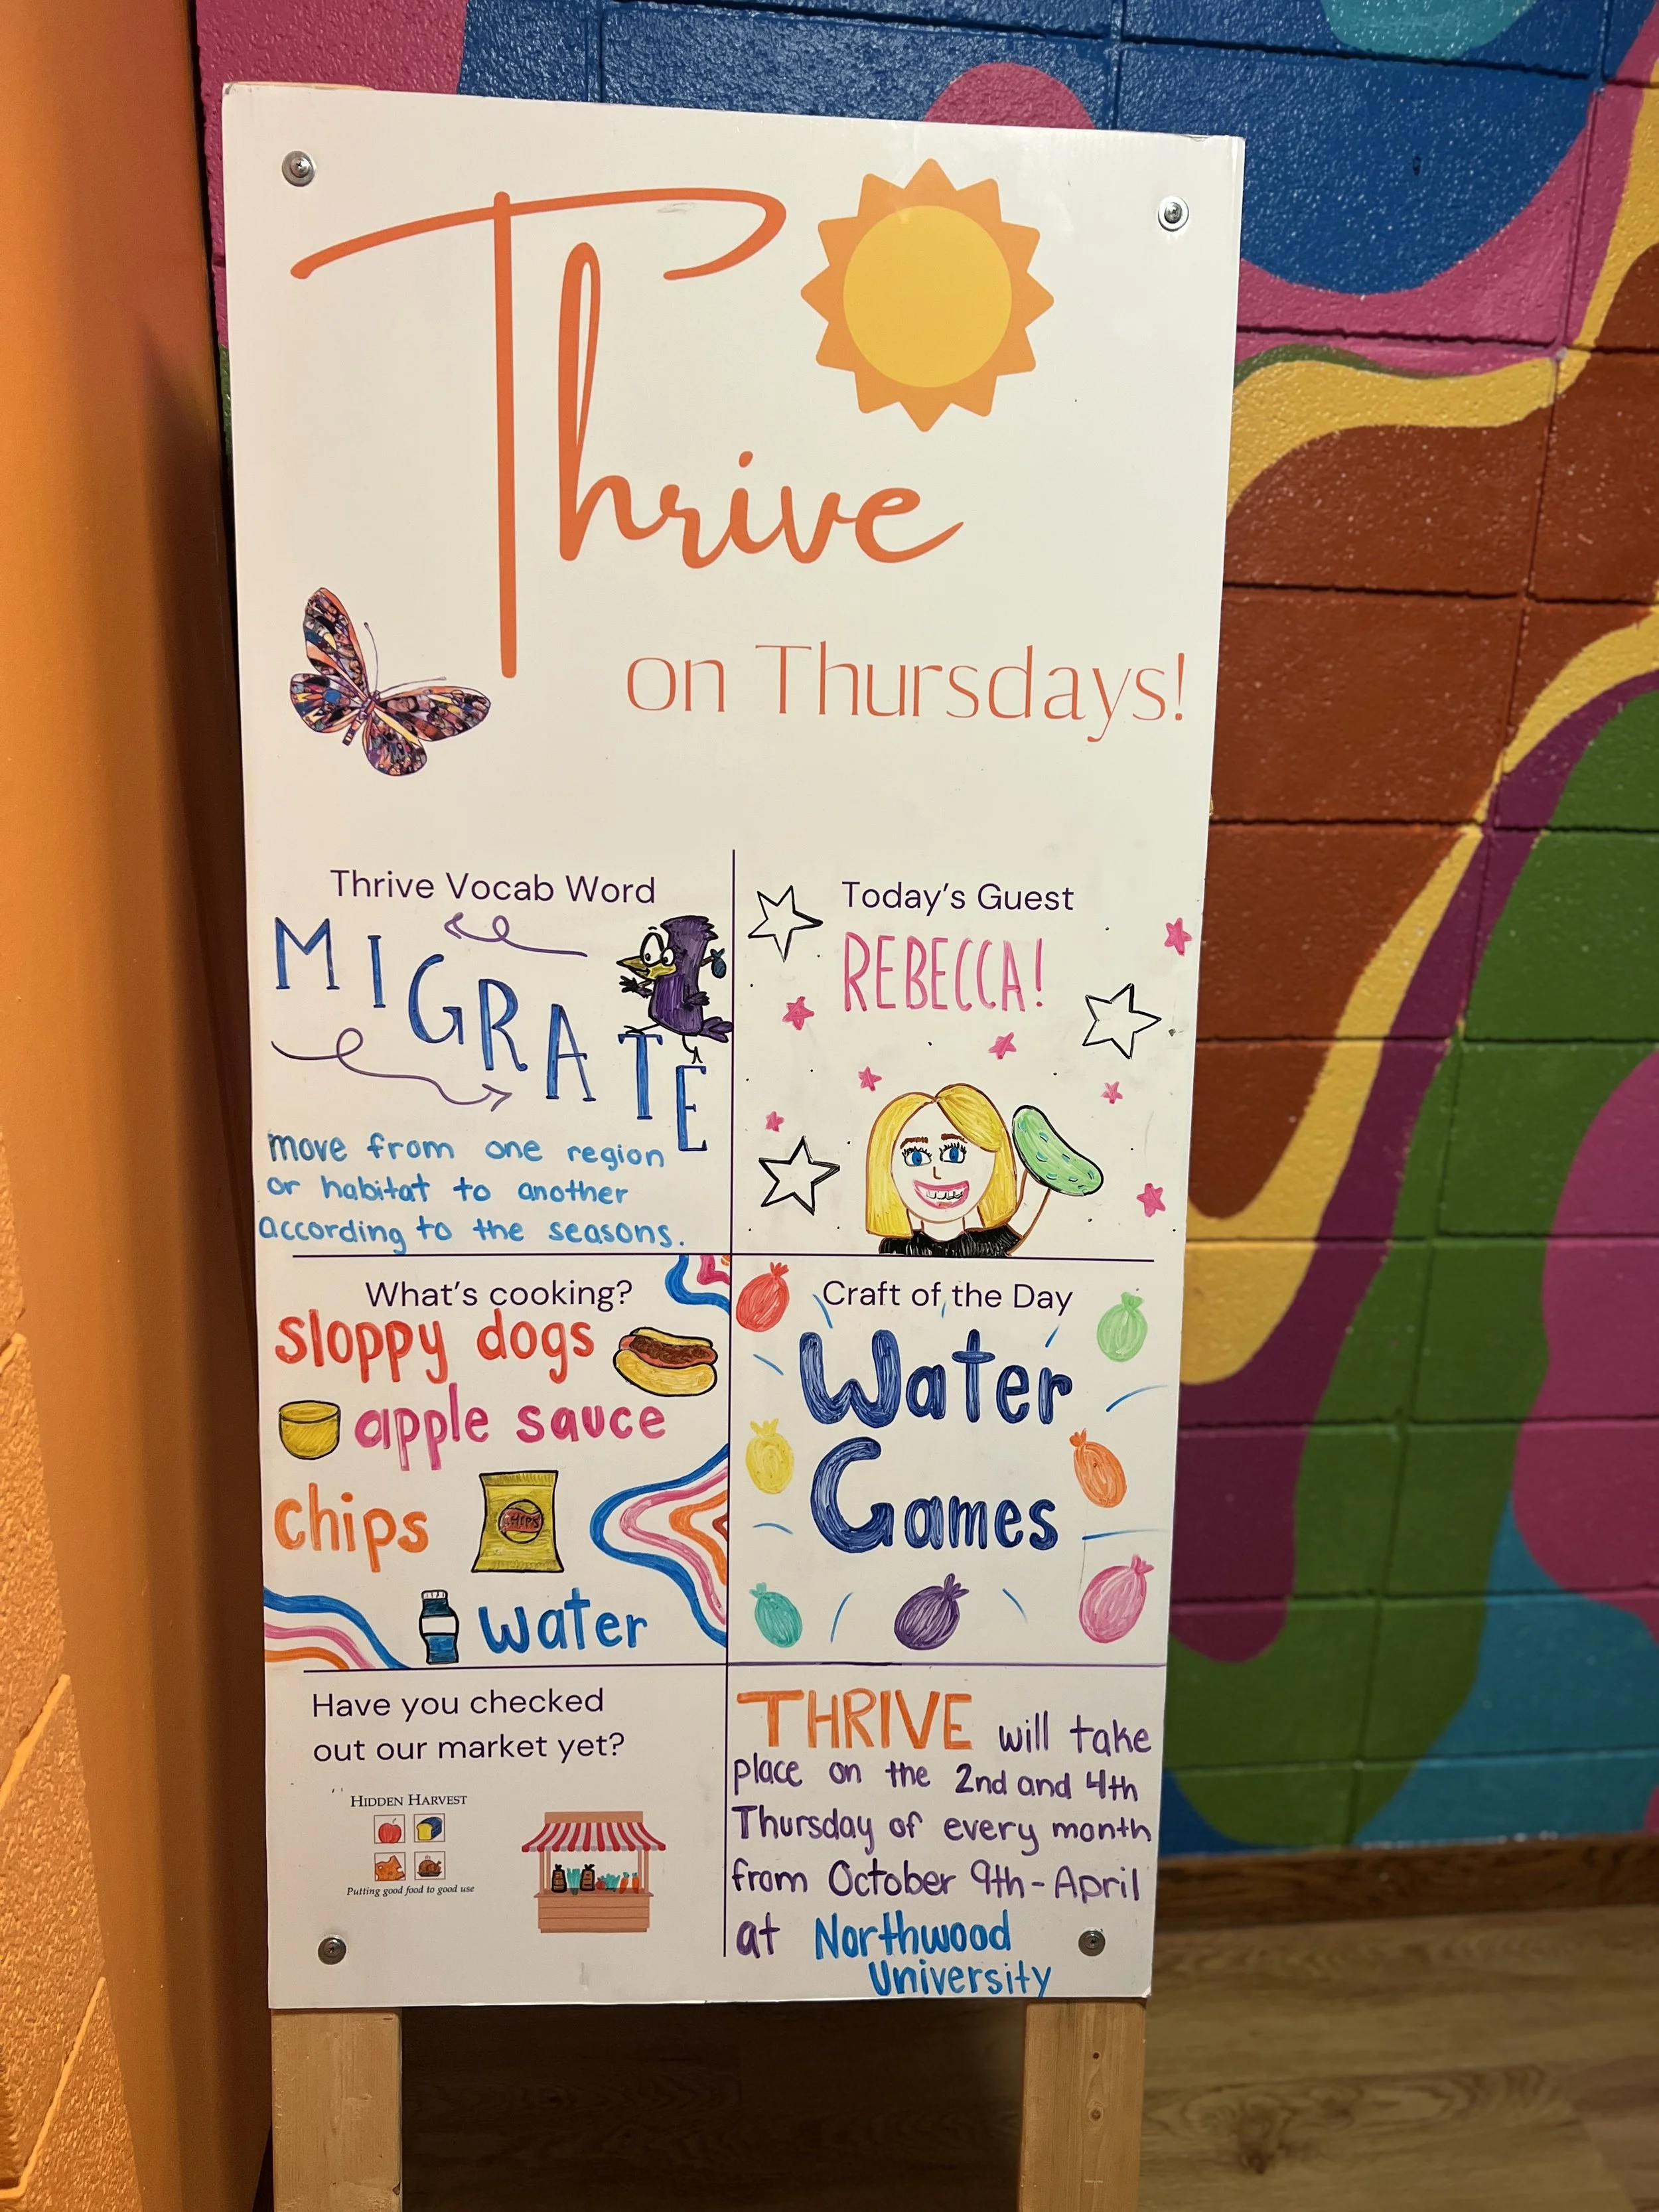 Thrive
on Thursdays!
Thrive Vocab Word
MIGRATE
move from one region
or habitat to another
according to the seasons.
Today's Guest
REBECCA!
What's cooking?
sloppy dogs
apple sauce
chips
CHIPS
water
Craft of the Day
Water
Games
Have you checked
out our market yet?
HIDDEN HARVEST
Putting good food to good use
THRIVE will take
place on the 2nd and 4th
Thursday of every month
from October 9th-April
at Northwood
University